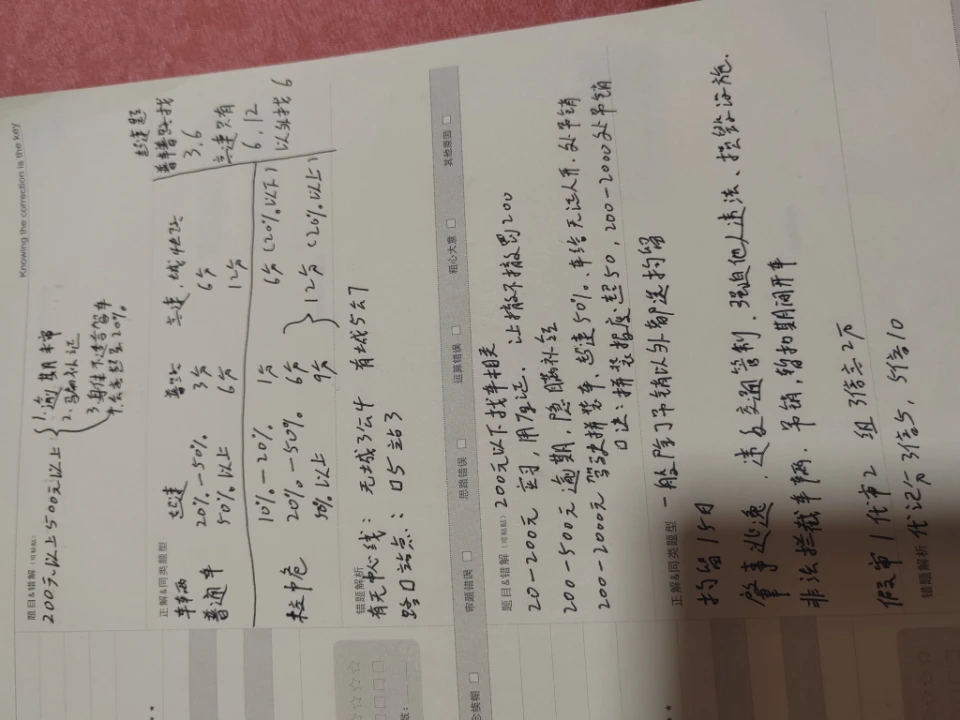 Knowing the correction is the key
题目&错解（可粘贴）
200元以上500元以下：
1. 逾期未审
2.
3. 身体不适合驾车
超20%
正解&同类题型
车辆 超速 普路 高速、城快路
普通车 20%-50% 3分 6分
50%以上 6分 12分
超速题
普车普路找
3.6
高速只有
6.12
以外找6
校中危 10%-20% 1分 6分（20%以下）
20%-50% 6分
50%以上 9分 12分（20%以上）
错题解析
有无中心线： 无城3公4 有城5公7
路口站点： 口5站3
审题错误 思路错误 运算错误 粗心大意 其他原因
题目&错解（可粘贴） 200元以下找车相关
20-200元 实习，用左证. 让撤不撤罚200
200-500元 逾期，隐瞒补领
200-2000元 驾决拼装车、超速50%、车给无证人开.处吊销
口诀：拼装报废超50，200-2000处吊销
正解&同类题型 一般除了吊销以外都选拘留
拘留15日
肇事逃逸、违反交通管制、强迫他人违法、损毁设施.
非法拦截车辆. 吊销，暂扣期间开车
假审1代审2 组3倍2万
错题解析 代记分3倍5，5倍10